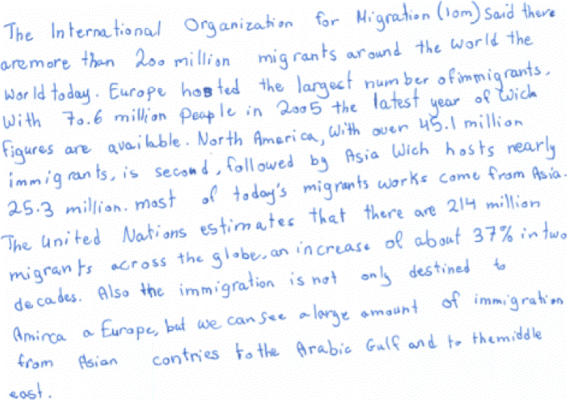 The International Organization for Migration (iom) Said there
are more than 200 million migrants around the world the
world today. Europe hosted the largest number of immigrants,
With 70.6 million People in 2005 the latest year of wich
figures are available. North America, With over 45.1 million
immigrants, is second, followed by Asia Wich hosts nearly
25.3 million. most of today's migrants works come from Asia.
The United Nations estimates that there are 214 million
migrants across the globe, an increase of about 37% in two
decades. Also the immigration is not only destined to
Aminca a Europe, but we can see a large amount of immigration
from Asian contries to the Arabic Gulf and to the middle
east.